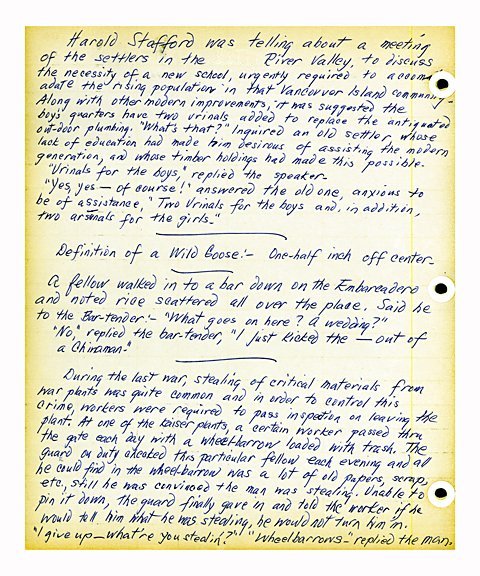 Harold Stafford was telling about a meeting
of the settlers in the River Valley, to discuss
the necessity of a new school, urgently required to accom-
adate the rising population in that Vancouver Island community-
Along with other modern improvements, it was suggested the
boys' quarters have two urinals added to replace the antiquated
out-door plumbing. "What's that?" inquired an old settler, whose
lack of education had made him desirous of assisting the modern
generation, and whose timber holdings had made this possible.
"Urinals for the boys," replied the speaker-
"Yes, yes — of course!" answered the old one, anxious to
be of assistance, "Two Urinals for the boys and, in addition,
two arsenals for the girls-"
Definition of a Wild Goose:- One-half inch off center-
A fellow walked in to a bar down on the Embarcadero
and noted rice scattered all over the place. Said he
to the Bar-tender:- "What goes on here? a wedding?"
"No," replied the bar-tender, "I just kicked the — out of
a Chinaman-"
During the last war, stealing of critical materials from
war plants was quite common and in order to control this
crime, workers were required to pass inspection on leaving the
plant. At one of the Kaiser plants, a certain worker passed thru
the gate each day with a wheel-barrow loaded with trash. The
guard on duty checked this particular fellow each evening and all
he could find in the wheel-barrow was a lot of old papers, scrap,
etc., still he was convinced the man was stealing. Unable to
pin it down, the guard finally gave in and told the worker if he
would tell him what he was stealing, he would not turn him in.
"I give up — what're you stealin'?" "Wheelbarrows-" replied the man.